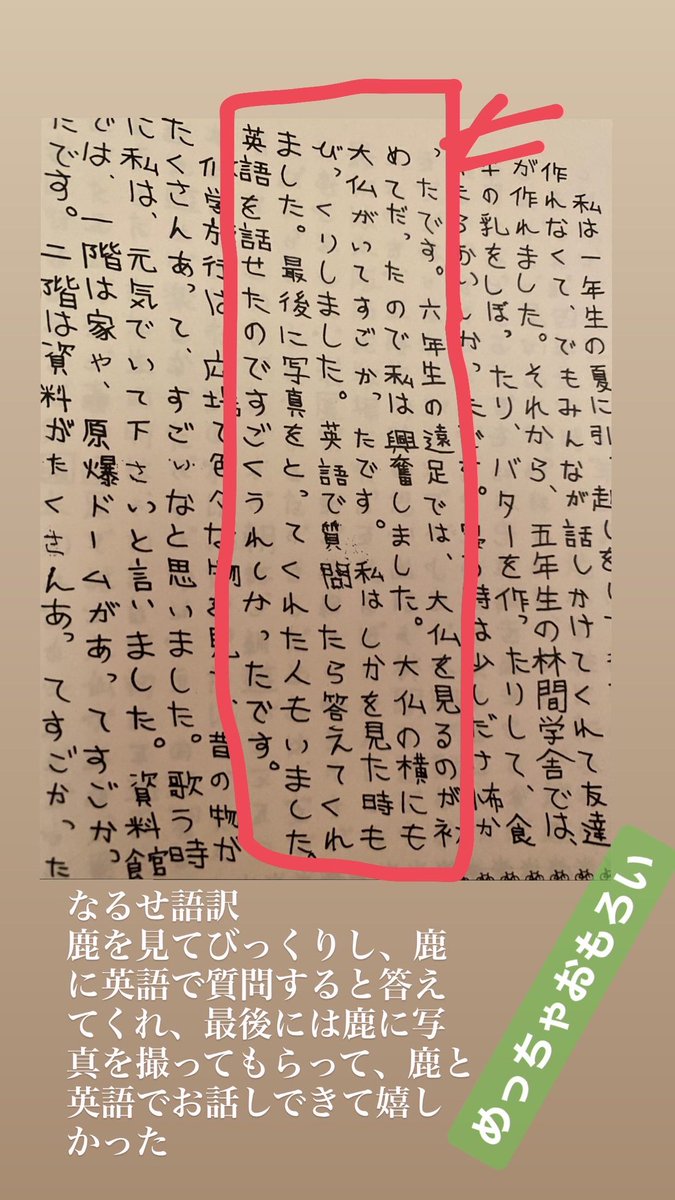 私は一年生の夏に引っ越しをして
作れなくて、でもみんなが話しかけてくれて友達
が作れました。それから、五年生の林間学舎では、
の乳をしぼったり、バターを作ったりして、食
おいしかったです。の時は少しだけ怖か
ったです。六年生の遠足では、大仏を見るのが初
めてだったので私は興奮しました。大仏の横にも
大仏がいてすごかったです。私はしかを見た時も
びっくりしました。英語で質問したら答えてくれ
ました。最後に写真をとってくれた人もいました。
英語を話せたのですごくうれしかったです。
修学旅行は、広場で色々な物を見て、昔の物が
たくさんあって、すごいなと思いました。歌う時
に私は、元気でいて下さいと言いました。資料館
では、一階は家や、原爆ドームがあってすごかっ
たです。二階は資料がたくさんあってすごかった
なるせ語訳
鹿を見てびっくりし、鹿
に英語で質問すると答え
てくれ、最後には鹿に写
真を撮ってもらって、鹿と
英語でお話しできて嬉し
かった
めっちゃおもろい